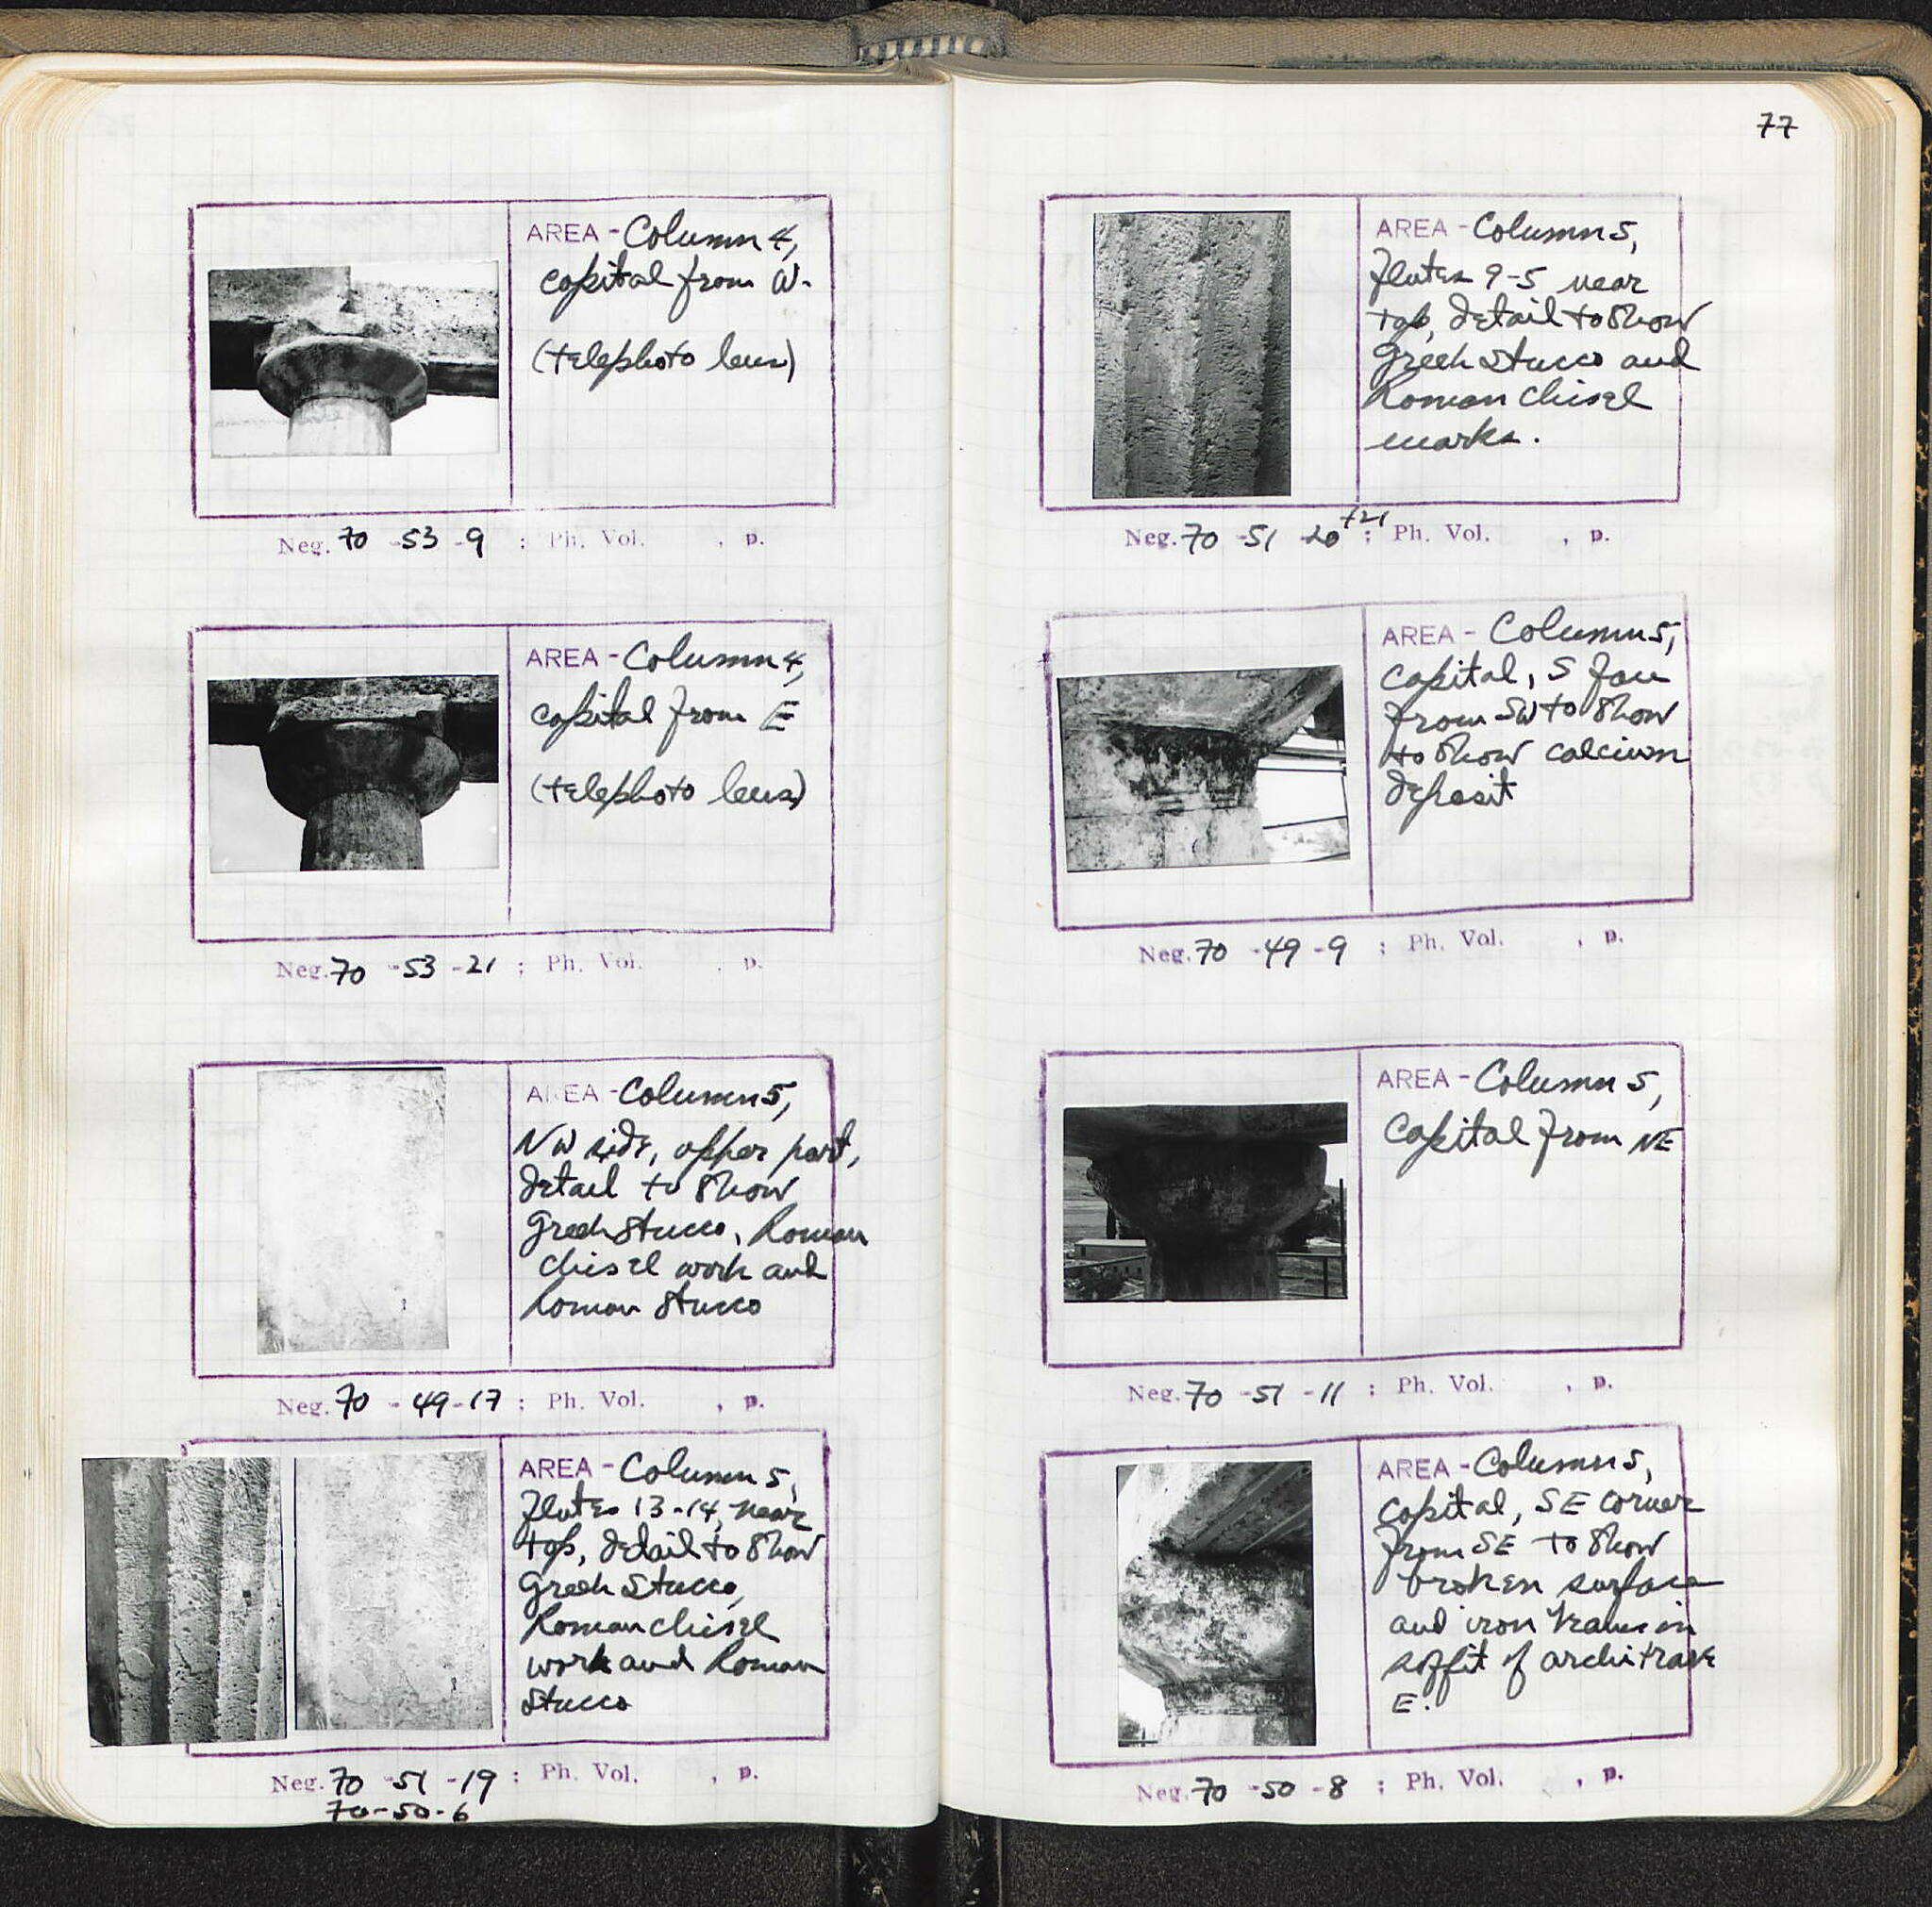 AREA - Column 4,
capital from W.
(telephoto lens)
Neg. 70 - 53 - 9 ; Ph. Vol. , p.
AREA - Column 4,
capital from E
(telephoto lens)
Neg. 70 - 53 - 21 ; Ph. Vol. , p.
AREA - Column 5,
NW side, upper part,
detail to show
Greek stucco, Roman
chisel work and
Roman stucco
Neg. 70 - 49 - 17 ; Ph. Vol. , p.
AREA - Column 5,
Flutes 13-14, near
top, detail to show
Greek stucco,
Roman chisel
work and Roman
stucco
Neg. 70 - 51 - 19 ; Ph. Vol. , p.
70-50-6
77
AREA - Column 5,
Flutes 9-5 near
top, detail to show
Greek stucco and
Roman chisel
marks.
Neg. 70 - 51 - 20 +21 ; Ph. Vol. , p.
AREA - Column 5,
capital, S face
from SW to show
to show calcium
deposit
Neg. 70 - 49 - 9 ; Ph. Vol. , p.
AREA - Column 5,
Capital from NE
Neg. 70 - 51 - 11 ; Ph. Vol. , p.
AREA - Column 5,
capital, SE corner
from SE to show
broken surface
and iron in
soffit of architrave
E.
Neg. 70 - 50 - 8 ; Ph. Vol. , p.